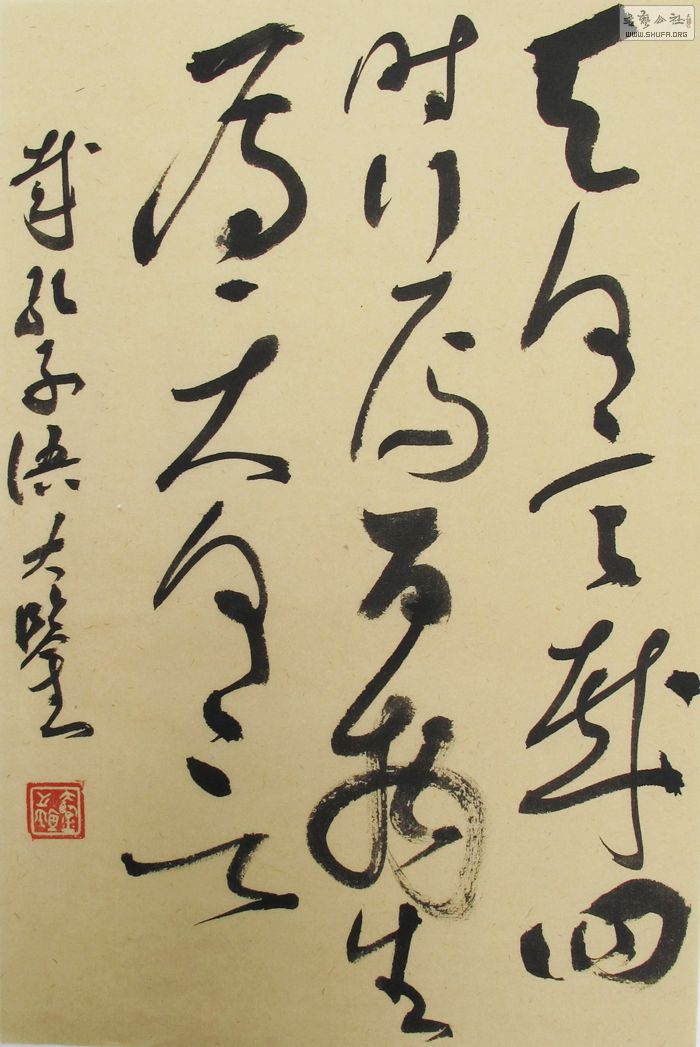 天何言哉四
时行焉百物生
焉天何言
哉孔子语大
书艺公社
WWW.SHUFA.ORG